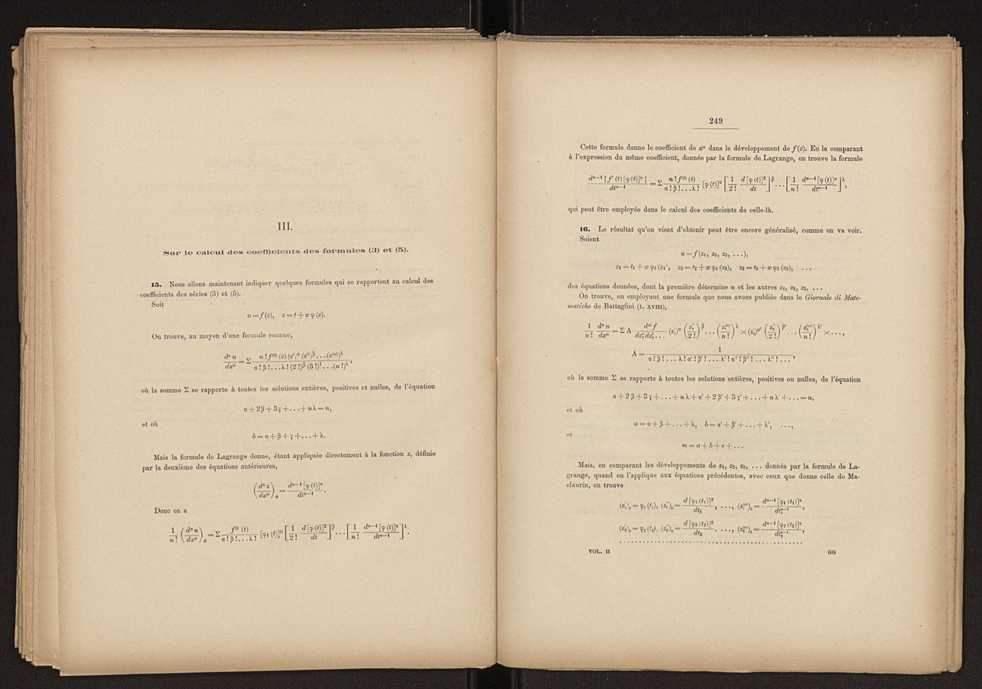 III.
Sur le calcul des coefficients des formules (3) et (5).
15. Nous allons maintenant indiquer quelques formules qui se rapportent au calcul des
coefficients des séries (3) et (5).
Soit
u = f(z), z = t + xφ(z).
On trouve, au moyen d'une formule connue,
dⁿu/dxⁿ = Σ n! f⁽ᵇ⁾(z) (z')^α (z'')^β . . . (z⁽ⁿ⁾)^λ / α! β! . . . λ! (2!)^β (3!)^γ . . . (n!)^λ,
où la somme Σ se rapporte à toutes les solutions entières, positives et nulles, de l'équation
α + 2β + 3γ + . . . + nλ = n,
et où
b = α + β + γ + . . . + λ.
Mais la formule de Lagrange donne, étant appliquée directement à la fonction z, définie
par la deuxième des équations antérieures,
(dⁿz/dxⁿ)₀ = dⁿ⁻¹[φ(t)]ⁿ/dtⁿ⁻¹.
Donc on a
1/n! (dⁿu/dxⁿ)₀ = Σ f⁽ᵇ⁾(t)/α! β! . . . λ! [φ(t)]^α [1/2! d[φ(t)]²/dt]^β . . . [1/n! dⁿ⁻¹[φ(t)]ⁿ/dtⁿ⁻¹]^λ.
249
Cette formule donne le coefficient de xⁿ dans le développement de f(z). En la comparant
à l'expression du même coefficient, donnée par la formule de Lagrange, on trouve la formule
dⁿ⁻¹{f'(t)[φ(t)]ⁿ}/dtⁿ⁻¹ = Σ n! f⁽ᵇ⁾(t)/α! β! . . . λ! [φ(t)]^α [1/2! d[φ(t)]²/dt]^β . . . [1/n! dⁿ⁻¹[φ(t)]ⁿ/dtⁿ⁻¹]^λ,
qui peut être employée dans le calcul des coefficients de celle-là.
16. Le résultat qu'on vient d'obtenir peut être encore généralisé, comme on va voir.
Soient
u = f(z₁, z₂, z₃, . . .),
z₁ = t₁ + xφ₁(z₁), z₂ = t₂ + xφ₂(z₂), z₃ = t₃ + xφ₃(z₃), . . .
des équations données, dont la première détermine u et les autres z₁, z₂, z₃, . . .
On trouve, en employant une formule que nous avons publiée dans le Giornale di Mate-
matiche de Battaglini (t. XVIII),
1/n! dⁿu/dxⁿ = Σ A dᵐf/dz₁ᵃdz₂ᵇ. . . (z₁')^α (z₁''/2!)^β . . . (z₁⁽ⁿ⁾/n!)^λ × (z₂')^α' (z₂''/2!)^β' . . . (z₂⁽ⁿ⁾/n!)^λ' × . . . ,
A = 1/α! β! . . . λ! α'! β'! . . . λ'! α''! β''! . . . λ''! . . . ,
où la somme Σ se rapporte à toutes les solutions entières, positives ou nulles, de l'équation
α + 2β + 3γ + . . . + nλ + α' + 2β' + 3γ' + . . . + nλ' + . . . = n,
et où
a = α + β + . . . + λ, b = α' + β' + . . . + λ', . . . ,
et
m = a + b + c + . . .
Mais, en comparant les développements de z₁, z₂, z₃, . . . donnés par la formule de La-
grange, quand on l'applique aux équations précédentes, avec ceux que donne celle de Ma-
claurin, on trouve
(z₁')₀ = φ₁(t₁), (z₁'')₀ = d[φ₁(t₁)]²/dt₁, . . . , (z₁⁽ⁿ⁾)₀ = dⁿ⁻¹[φ₁(t₁)]ⁿ/dt₁ⁿ⁻¹,
(z₂')₀ = φ₂(t₂), (z₂'')₀ = d[φ₂(t₂)]²/dt₂, . . . , (z₂⁽ⁿ⁾)₀ = dⁿ⁻¹[φ₂(t₂)]ⁿ/dt₂ⁿ⁻¹,
. . . . . . . . . . . . . . . . . . . . . . . . . . . . . . . . . . . .
VOL. II GG